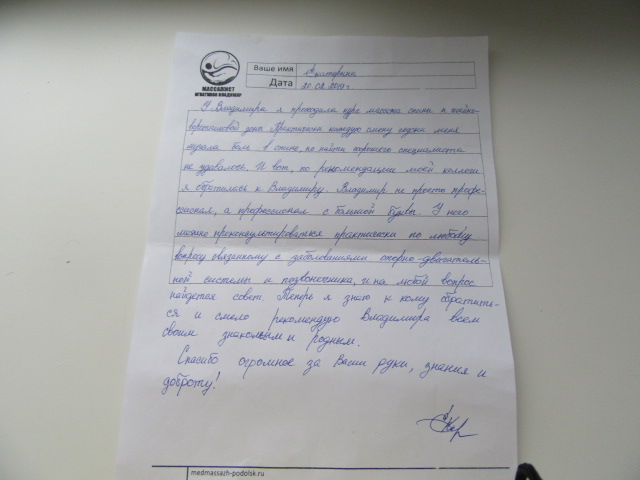 МАССАЖИСТ
ИГНАТЕНКО ВЛАДИМИР
Ваше имя Екатерина
Дата 20.02.2019 г.
У Владимира я проходила курс массажа спины и шейно-
воротниковой зоны. Практически каждую смену сезона меня
мучала боль в спине, но найти хорошего специалиста
не удавалось. И вот, по рекомендации моей коллеги
я обратилась к Владимиру. Владимир не просто профе-
ссионал, а профессионал с большой буквы. У него
можно проконсультироваться практически по любому
вопросу связанному с заболеваниями опорно-двигатель-
ной системы и позвоночника, и на любой вопрос
найдется совет. Теперь я знаю к кому обратить-
ся и смело рекомендую Владимира всем
своим знакомым и родным.
Спасибо огромное за Ваши руки, знания и
доброту!
medmassazh-podolsk.ru